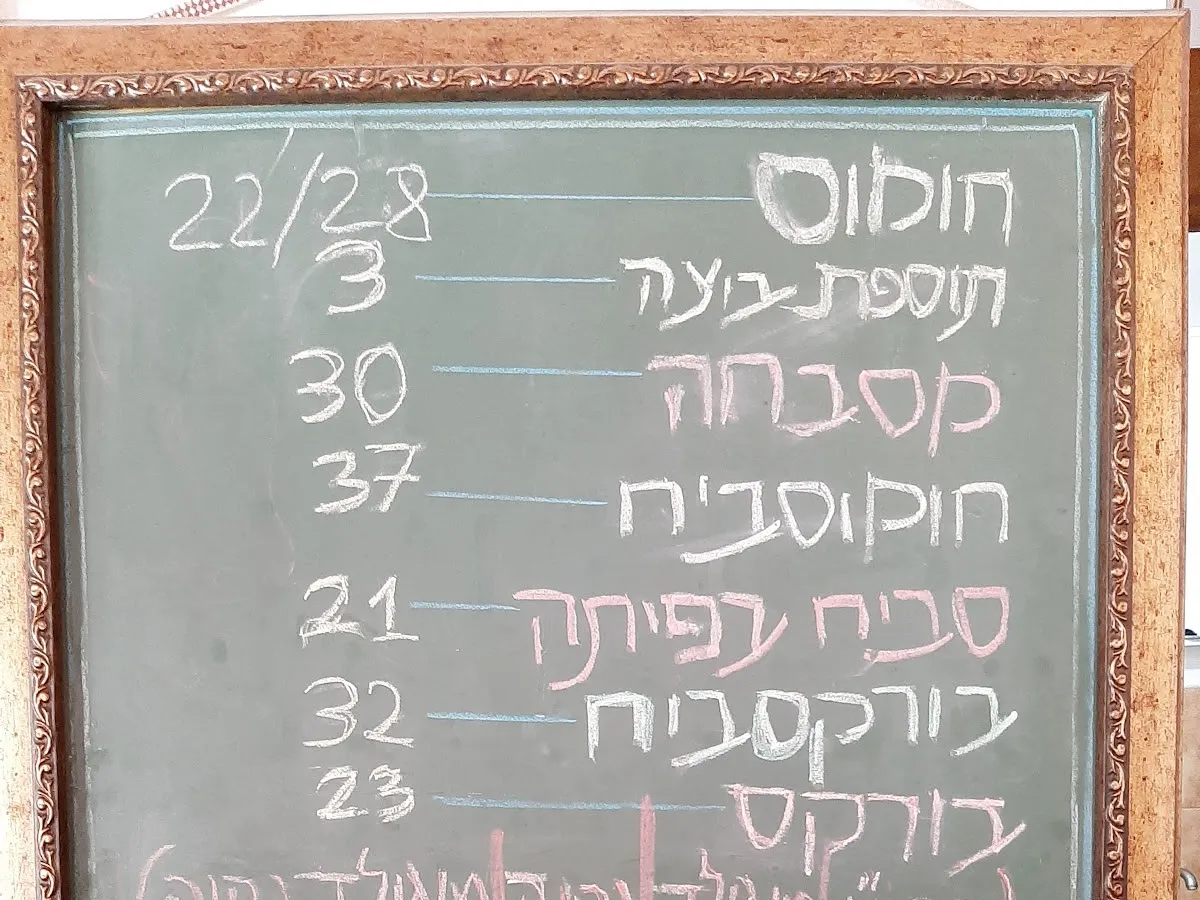 חומוס 22/28
תוספת ביצה 3
מסבחה 30
חומוסביח 37
סביח בפיתה 21
בורקסביח 32
בורקס 23